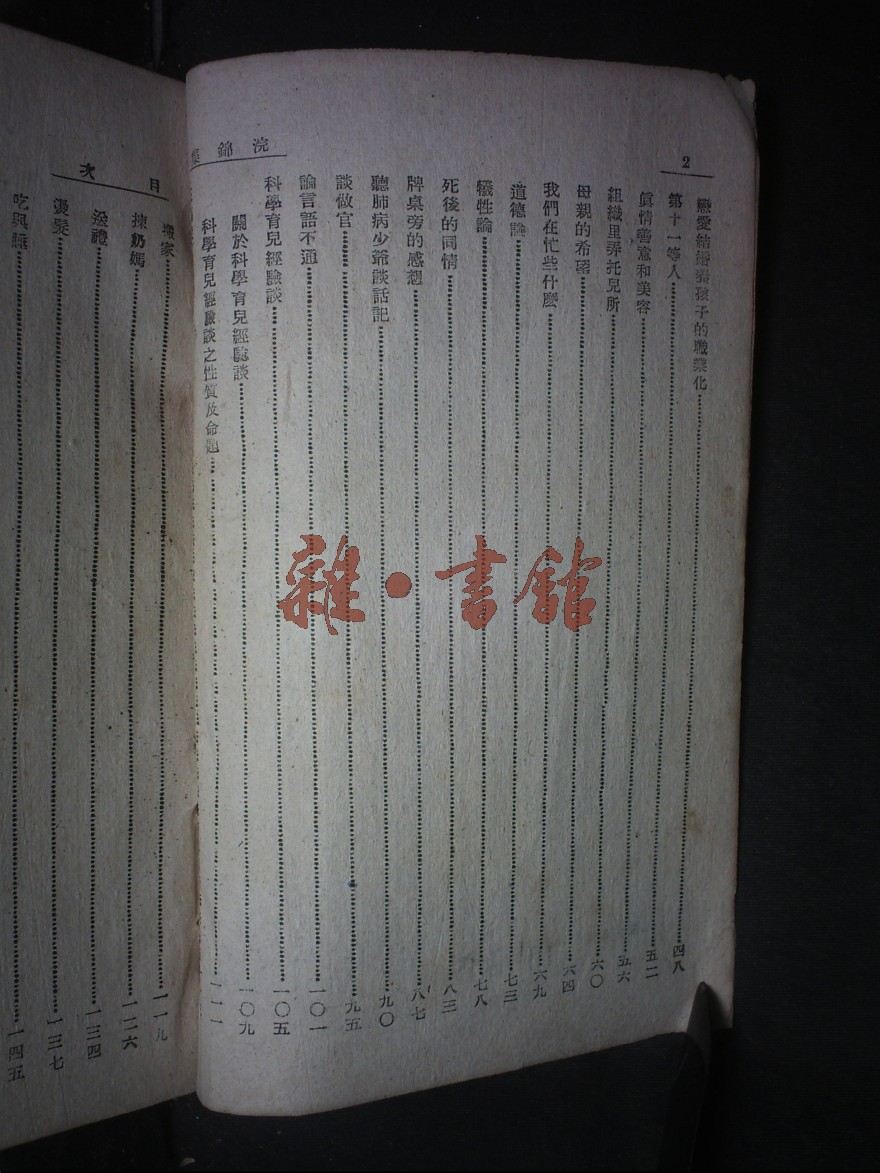 2
浣錦集
戀愛結婚養孩子的職業化……四八
第十一等人……五二
真情善意和美容……五六
組織里弄托兒所……六〇
母親的希望……六四
我們在忙些什麼……六九
道德論……七三
犧牲論……七八
死後的同情……八三
牌桌旁的感想……八七
聽肺病少爺談話記……九〇
談做官……九五
論言語不通……一〇一
科學育兒經驗談……一〇五
關於科學育兒經驗談……一〇九
科學育兒經驗談之性質及命題……一一一
目次
搬家……一一九
揀奶媽……一二六
送禮……一三四
燙髮……一三七
吃與睡……一四五
雜·書館